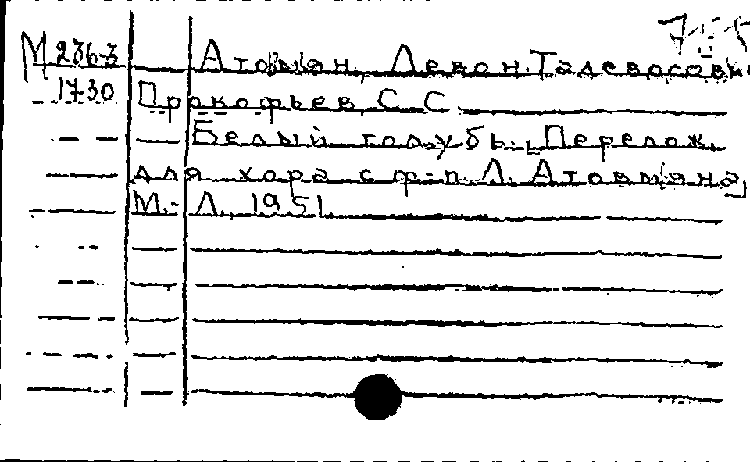 М 236-3 Атовмян, Левон Тадевосович
1730 Прокофьев, С. С.
Белый голубь. Перелож.
для хора с ф-п. Л. Атовмяна,
М.-Л., 1951.